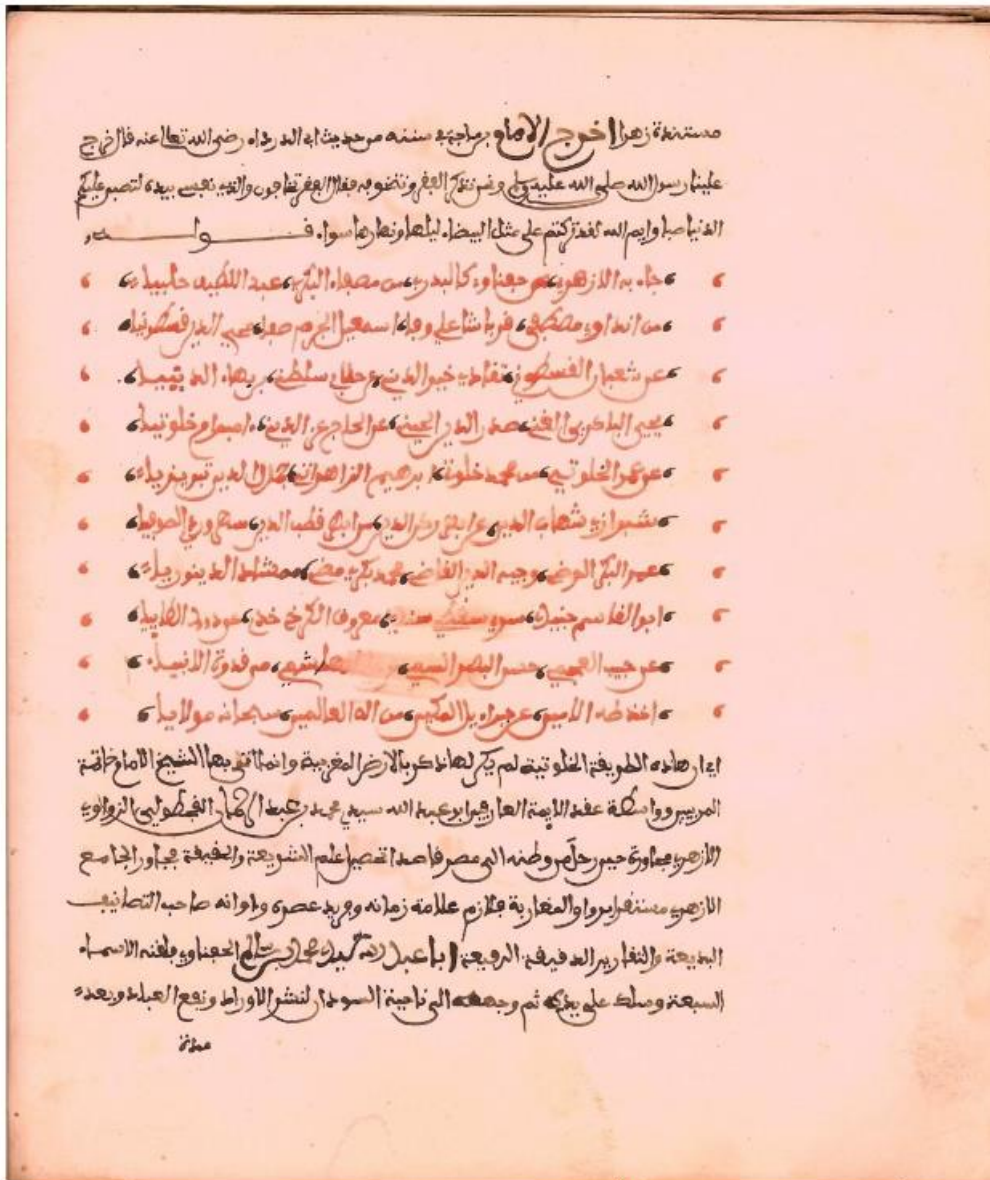 مستندة زهرا اخرج الامام بن ماجة في سننه من حديث ابي الدرداء رضي الله تعالى عنه قال خرج
علينا رسول الله صلى الله عليه وسلم ونحن نذكر الفقر ونتخوفه فقال الفقر تخافون والذي نفسي بيده لتصبن عليكم
الدنيا صبا وايم الله لقد تركتكم على مثل البيضاء ليلها ونهارها سواء قوله
جاء به الازهري عن حفناوي كالبدري من مصطفى البكري عبد اللطيف حلبيا
من افنداوي مصطفى قرباشا علي وفا اسمعيل الجرم صفا محيي الدين قسطمونيا
عن شعبان القسطموني تفادى خير الدين عن جلبي سلطني بن بهاء الدين
يحيى الباكربي الفني صدر الدين الحيني عن الحاج عز الدين امبرام خلوتيا
عن عمر الخلوتي من محمد خلوة ابرهيم الزاهراني جمال الدين تبريزيا
شيرازي شهاب الدين عن ابهري ركن الدين من ابهر قطب الدين سهروردي الصوفيا
عمر البكر الوضي وجيه الدين القاضي محمد بكري مضي ممشاد الدينوريا
ابو القاسم جنيد سري سقطي سند معروف الكرخي خذ عن داود الطاييا
عن حبيب العجمي حسن البصر السمي هاشمي من قدوة الانبيا
اخذ طه الامين عن جبرايل المكين من اله العالمين سبحانه مولايا
اي ان هاذه الطريقة الخلوتية لم يكن لها ذكر بالارض المغربية وانما اتى بها الشيخ الامام خاتمة
المربيين وواسطة عقد الايمة العارفين ابو عبد الله سيدي محمد بن عبد الرحمان القجطولي الزواوي
الازهري مجاورة حين رحل من وطنه الى مصر قاصدا تحصيل علم الشريعة والحقيقة فجاور الجامع
الازهري مستقرا برواق المغاربة فلازم علامة زمانه وفريد عصره واوانه صاحب التصانيف
البديعة والتقارير الدقيقة الرفيعة ابا عبد الله سيدي محمد بن سالم الحفناوي فلقنه الاسماء
السبعة وسلك على يديه ثم وجهه الى ناحية السودان لنشر الاوراد ونفع العباد وبعد